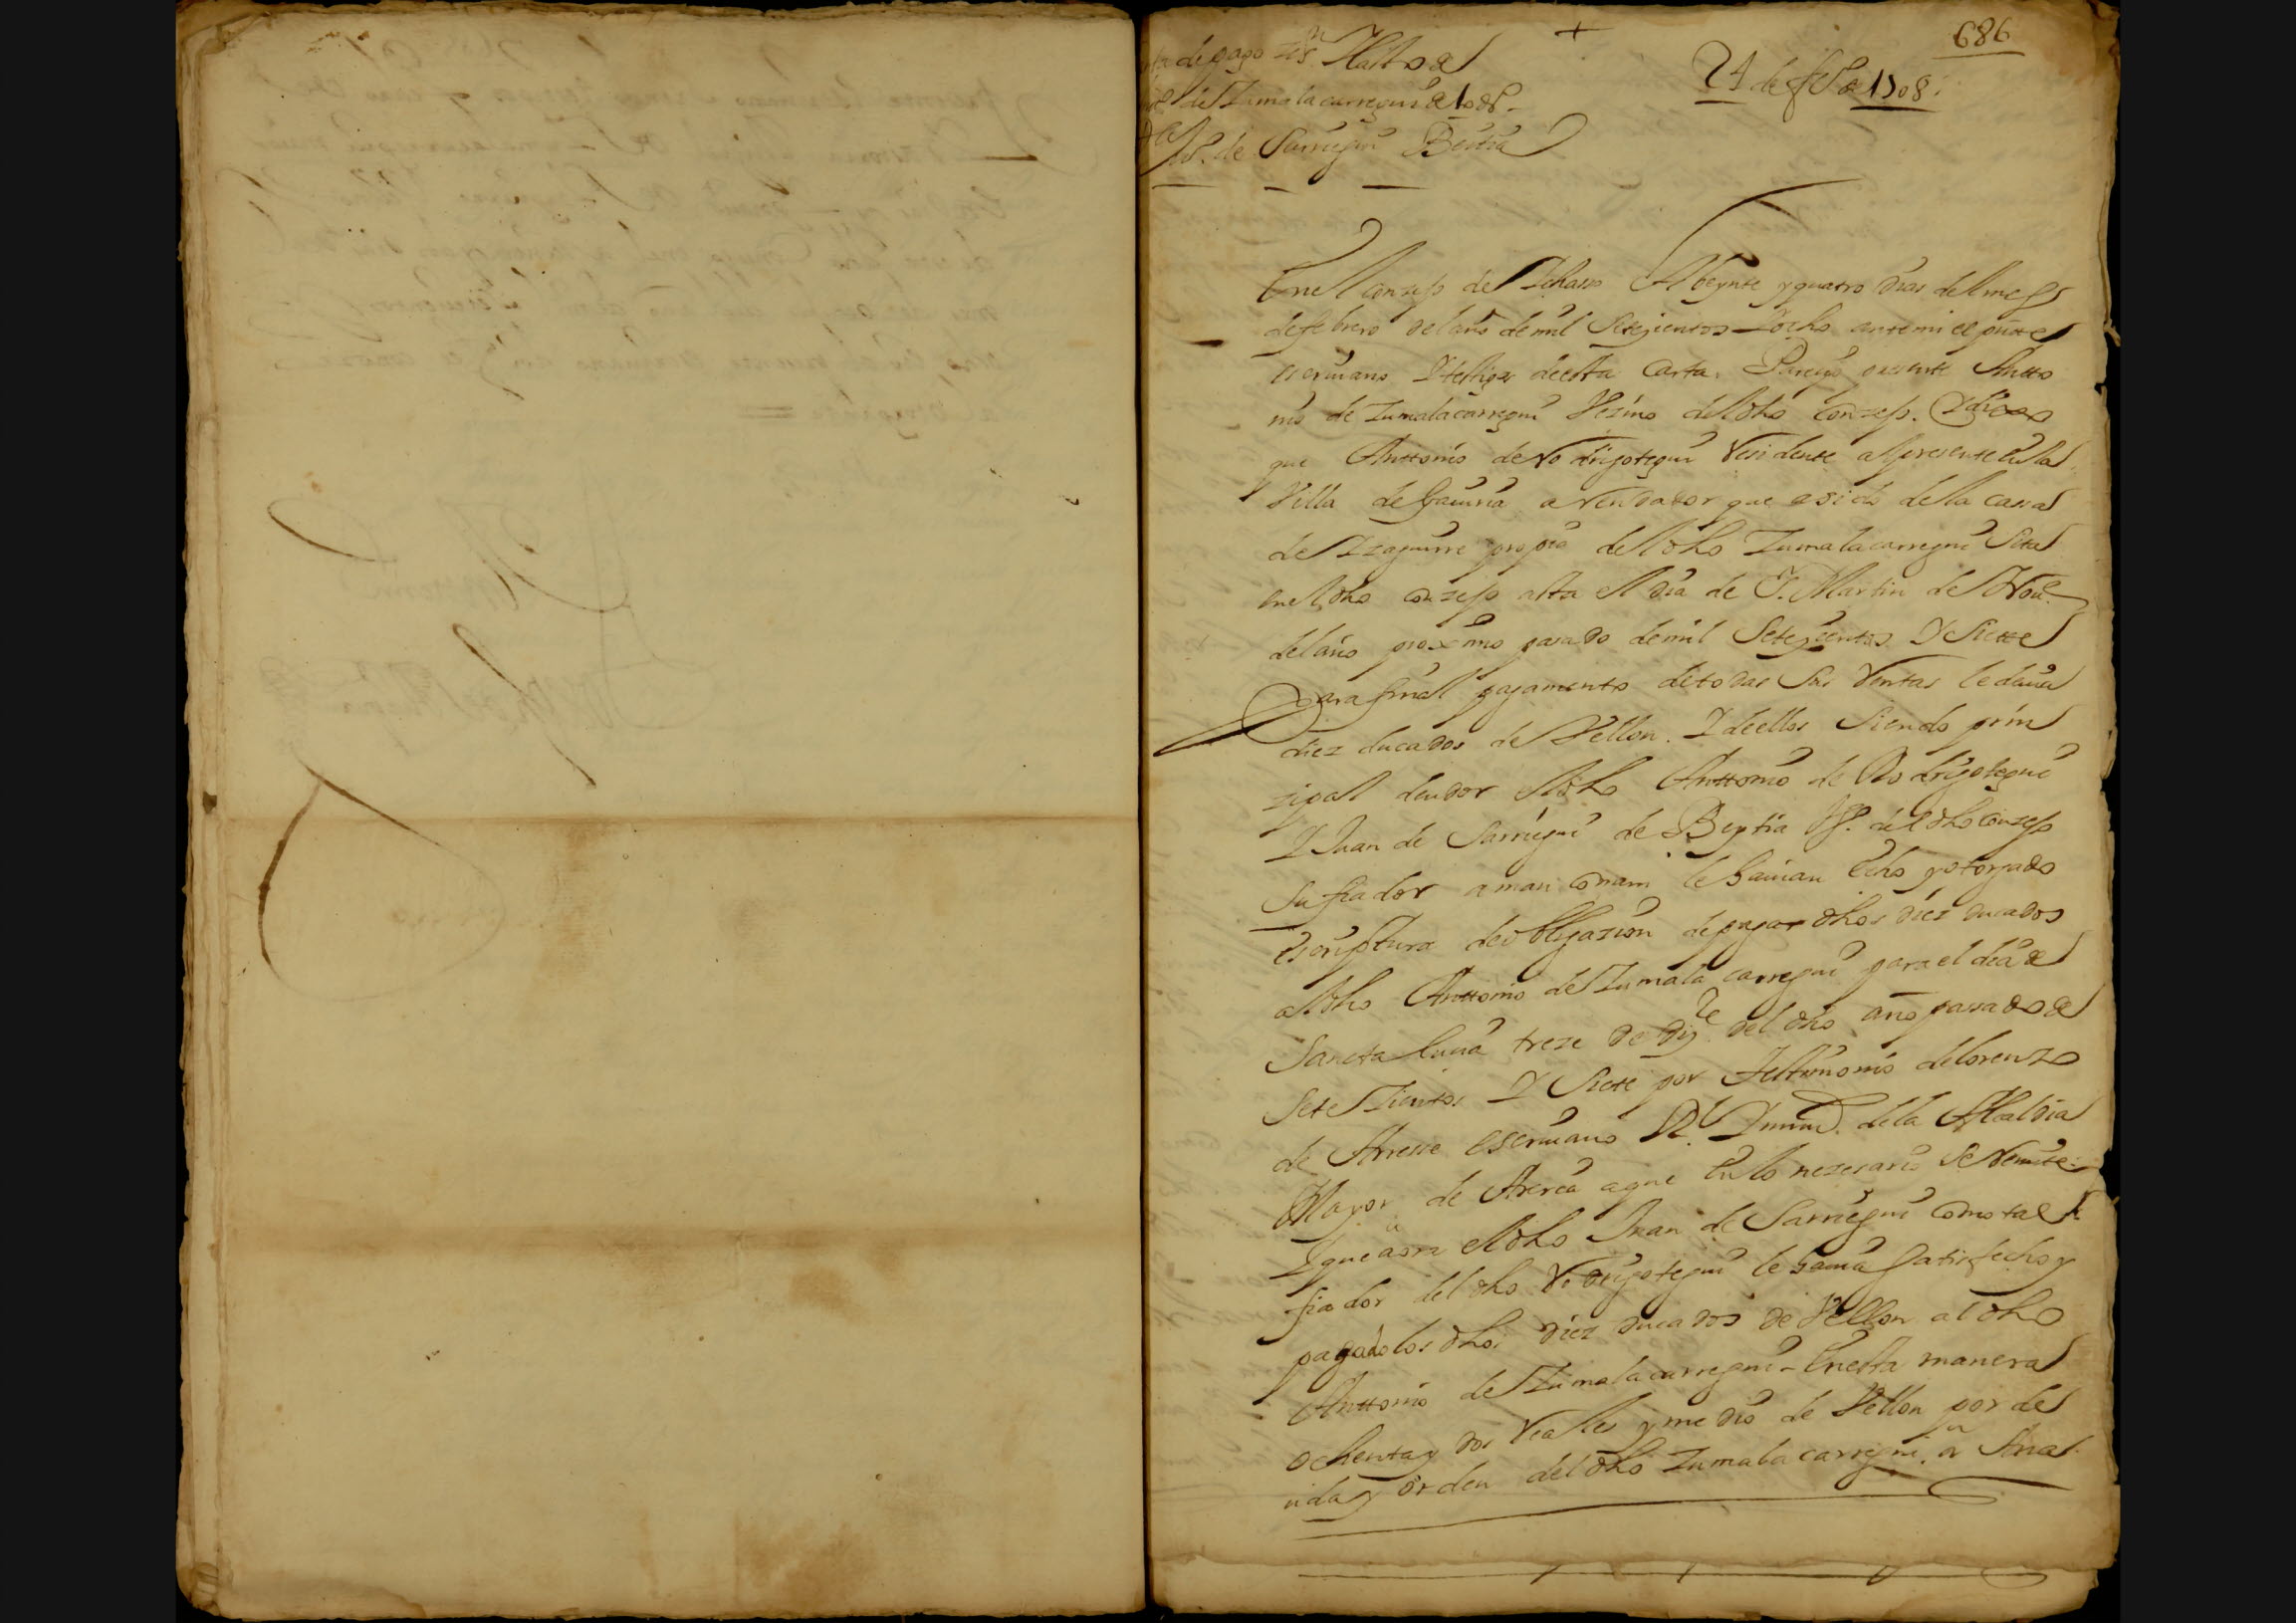 686
24 de feb.o de 1708.
de pago
de Zumalacarregui
de Sarriegui Beitia
En el conzejo de Ichasso A beynte y quatro dias del mes
de febrero del año de mil Setezientos Y ocho ante mi el press.te
escriuano Y testigos de esta Carta. Parezio presente Antto
nio de Zumalacarregui Vezino del dho Conzejo. Y dixo
que Anttonio de Rodrigotegui Residente al presente en la
Villa de Gauiria arrendador que a sido de la cassa
de Yzaguirre propia del dho Zumalacarregui Sita
en el dho conzejo asta el dia de S. Martin de Nou.e
del año proximo pasado de mil Setezientos Y Siette
Para final pagamento de todas Sus Rentas le deuia
diez ducados de Vellon. Y de ellos Siendo prin
zipal deudor el dho Anttonio de Rodrigotegui
Y Juan de Sarriegui de Beytia Vz.o del dho Conzejo
Su fiador a man comun le hauian echo y otorgado
escriptura de obligazion de pagar dhos diez ducados
al dho Anttonio de Zumalacarregui para el dia de
Sancta Luzia treze de diz.e del dho año pasado de
SeteZientos Y Siete por testimonio de Lorenzo
de Arresse escriuano R.l Y num.o de la Alcaldia
Mayor de Areria a que en lo nezesario Se Remite.
Y que aora el dho Juan de Sarriegui Como tal
fiador del dho Rodrigotegui le hauia Satisfecho y
pagado los dhos diez ducados de Vellon al dho
Anttonio de Zumalacarregui - En esta manera
ochenta y dos Reales y medio de Vellon por de
uda y orden del dho Zumalacarregui. a Ana